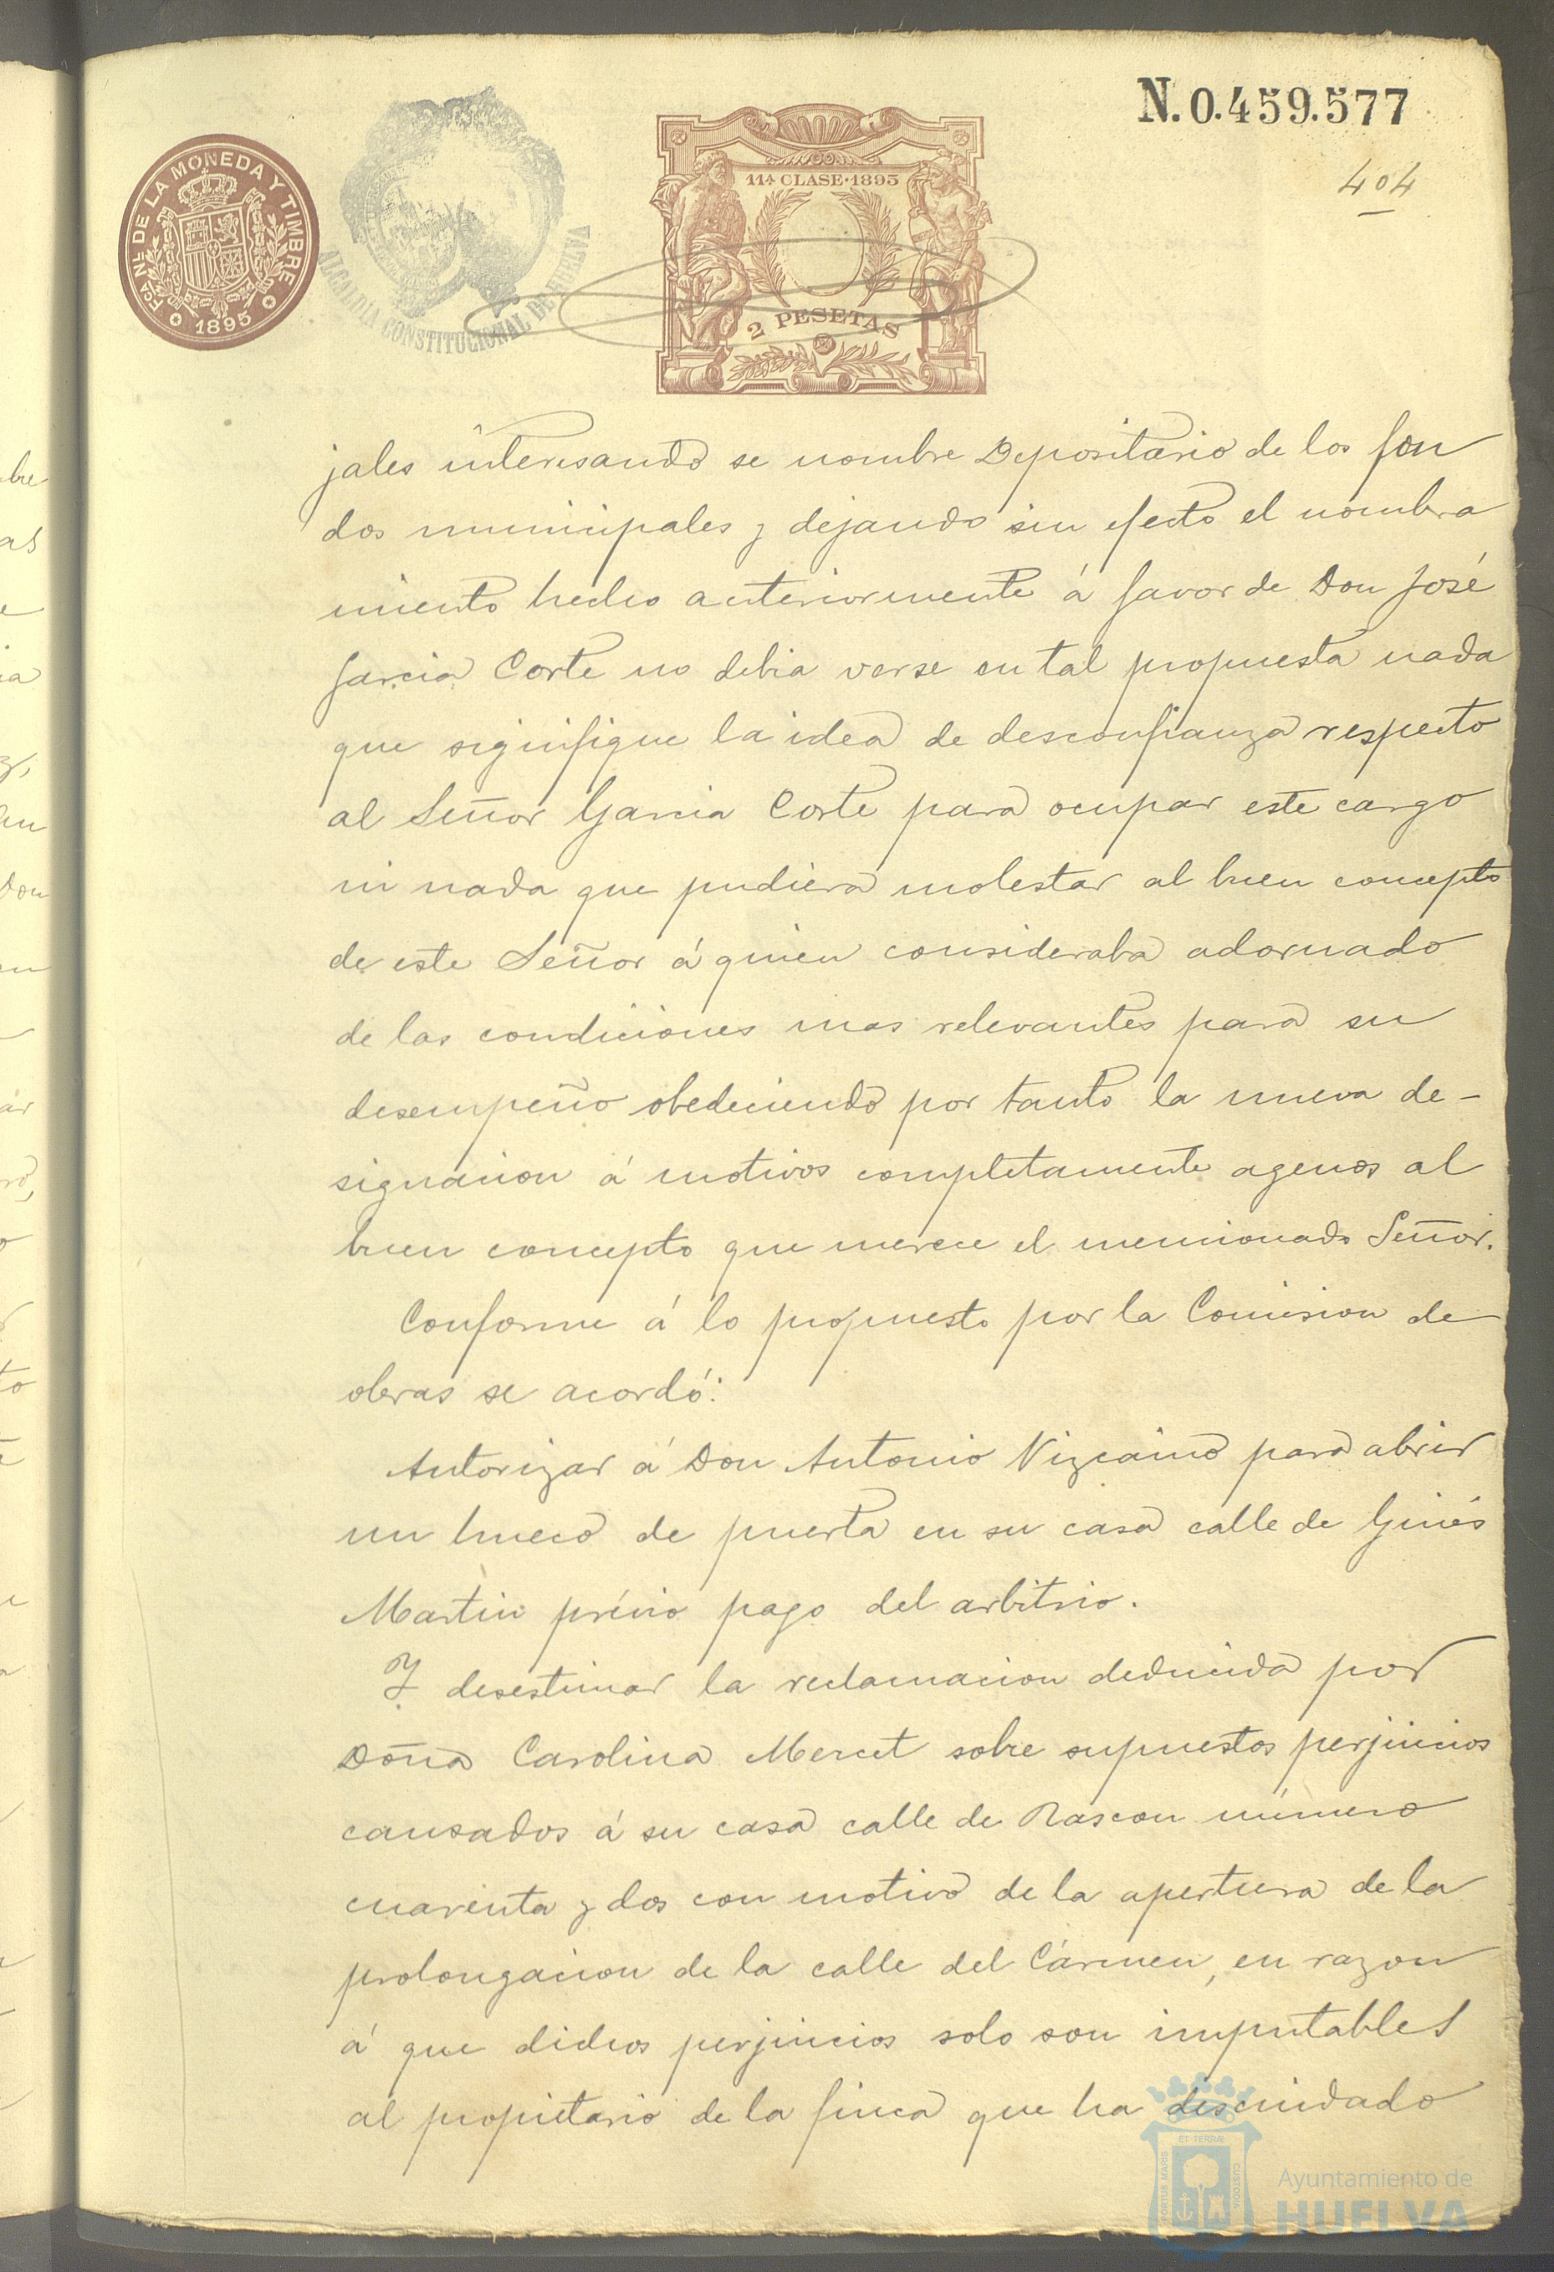 N.0.459.577
404
FCA NL DE LA MONEDA Y TIMBRE
1895
ALCALDIA CONSTITUCIONAL DE HUELVA
11ª CLASE·1895
2 PESETAS
jales interesando se nombre Depositario de los fon
dos municipales y dejando sin efecto el nombra
miento hecho anteriormente á favor de Don José
Garcia Corte no debia verse en tal propuesta nada
que signifique la idea de desconfianza respecto
al Señor Garcia Corte para ocupar este cargo
ni nada que pudiera molestar al buen concepto
de este Señor á quien consideraba adornado
de las condiciones mas relevantes para su
desempeño obedeciendo por tanto la nueva de-
signacion á motivos completamente agenos al
buen concepto que merece el mencionado Señor.
Conforme á lo propuesto por la Comision de
obras se acordó:
Autorizar á Don Antonio Vizcaino para abrir
un hueco de puerta en su casa calle de Ginés
Martin prévio pago del arbitrio.
Y desestimar la reclamacion deducida por
Doña Carolina Mercet sobre supuestos perjuicios
causados á su casa calle de Rascon número
cuarenta y dos con motivo de la apertura de la
prolongacion de la calle del Cármen, en razon
á que dichos perjuicios solo son imputables
al propietario de la finca que ha descuidado
PORTUS MARIS ET TERRÆ CUSTODIA
Ayuntamiento de
HUELVA